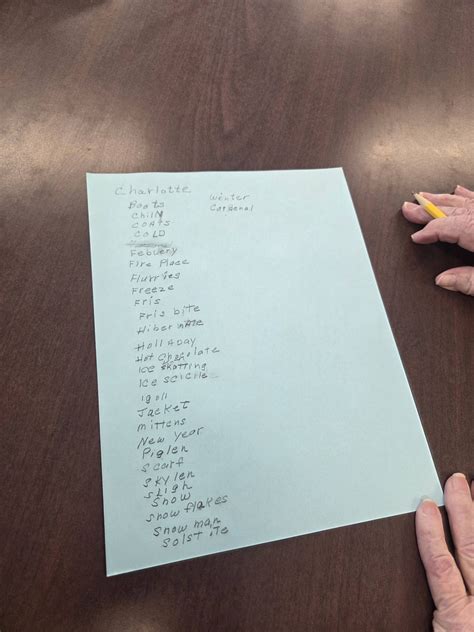 Charlotte
Boots
Chill
COATS
COLD
Febuery
Fire Place
Flurries
Freeze
Fris
Fris bite
Hiber nate
Holl aday
Hot Chocolate
Ice Skatting
Ice scicile
igoll
Jacket
mittens
New Year
Piglen
Scarf
Skylen
Sligh
Snow
Snow flakes
Snow man
Solst ite
Winter
Cardenal